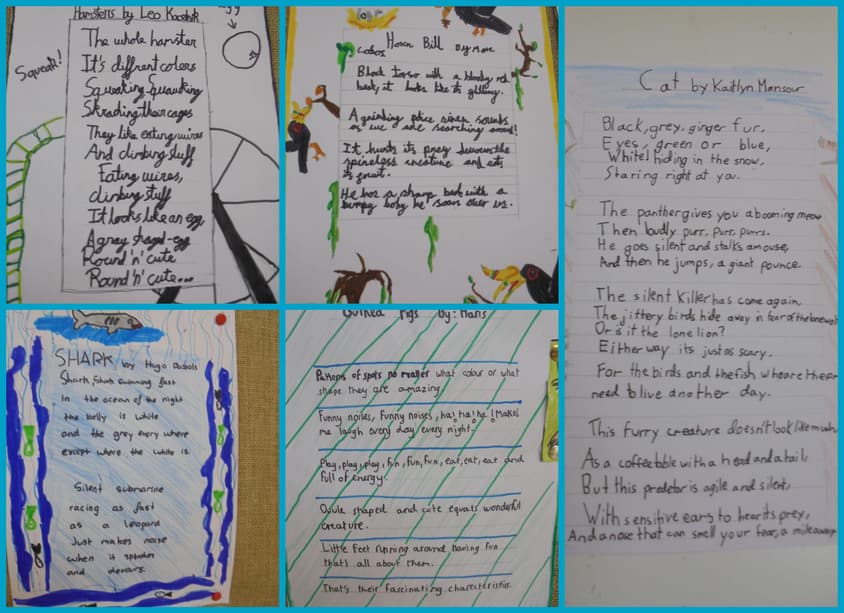 Hamsters by Leo
The whole hamster
It's diffrent colors
Squeaking, Squeaking
their cages
They like eating wires
And climbing stuff
Eating wires,
climbing stuff
It looks like an egg
A gray shaped-egg
Round 'n' cute
Round 'n' cute...
Squeak!
Horn Bill By Marc
Black torso with a bloody red
beak, it looks like its
A grinding police siren sounds
as we are searching around!
It hunts its prey
spineless creature and eats
its fruit.
He has a sharp beak with a
bumpy body he soars over us.
SHARK by Hugo
Shark, Shark swimming fast
In the ocean of the night
the belly is white
and the grey every where
except where the white is.
Silent submarine
racing as fast
as a leopard
Just makes noise
when it splashes
and devours.
Guinea Pigs by: Hans
Patterns of spots no matter what colour or what
shape they are amazing.
Funny noises, Funny noises, ha! ha! he! Makes
me laugh every day every night.
Play, play, play, fun, fun, fun, eat, eat, eat and
full of energy.
Ovule shaped and cute equals wonderful
creature.
Little feet running around having fun
that's all about them.
That's their fascinating characteristics.
Cat by Kaitlyn Mansour
Black, grey, ginger fur,
Eyes, green or blue,
White! hiding in the snow,
Staring right at you.
The panther gives you a booming meow
Then loudly purr, purr, purrs.
He goes silent and stalks a mouse,
And then he jumps, a giant pounce.
The silent killer has come again
The jittery birds hide away in fear of the lone wolf
Or is it the lone lion?
Either way its just as scary.
For the birds and the fish who are there
need to live another day.
This furry creature doesn't look like much,
As a coffee table with a head and a tail,
But this predetor is agile and silent,
With sensitive ears to hear its prey,
And a nose that can smell your fear, a mile away